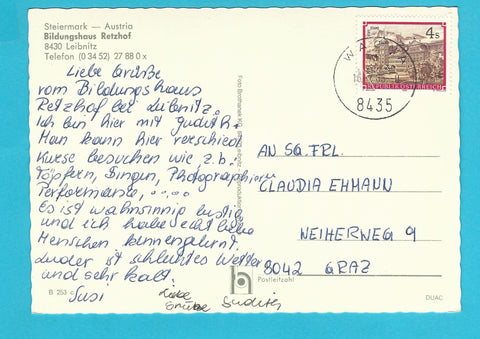 Steiermark — Austria
Bildungshaus Retzhof
8430 Leibnitz
Telefon (0 34 52) 27 88 0 x
Liebe Grüße
vom Bildungshaus
Retzhof bei Leibnitz.
Ich bin hier mit Judith.
Man kann hier verschied.
Kurse besuchen wie z.b.:
Töpfern, Singen, Photographieren
Performance, .....
Es ist wahnsinnig lustig
und ich habe echt liebe
Menschen kennengelernt.
Leider ist schlechtes Wetter
und sehr kalt.
Susi
Liebe
Grüße Judith
B 253
4 s
REPUBLIK ÖSTERREICH
8435
AN SG. FRL.
CLAUDIA EHMANN
WEIHERWEG 9
8042 GRAZ
Postleitzahl
DUAC